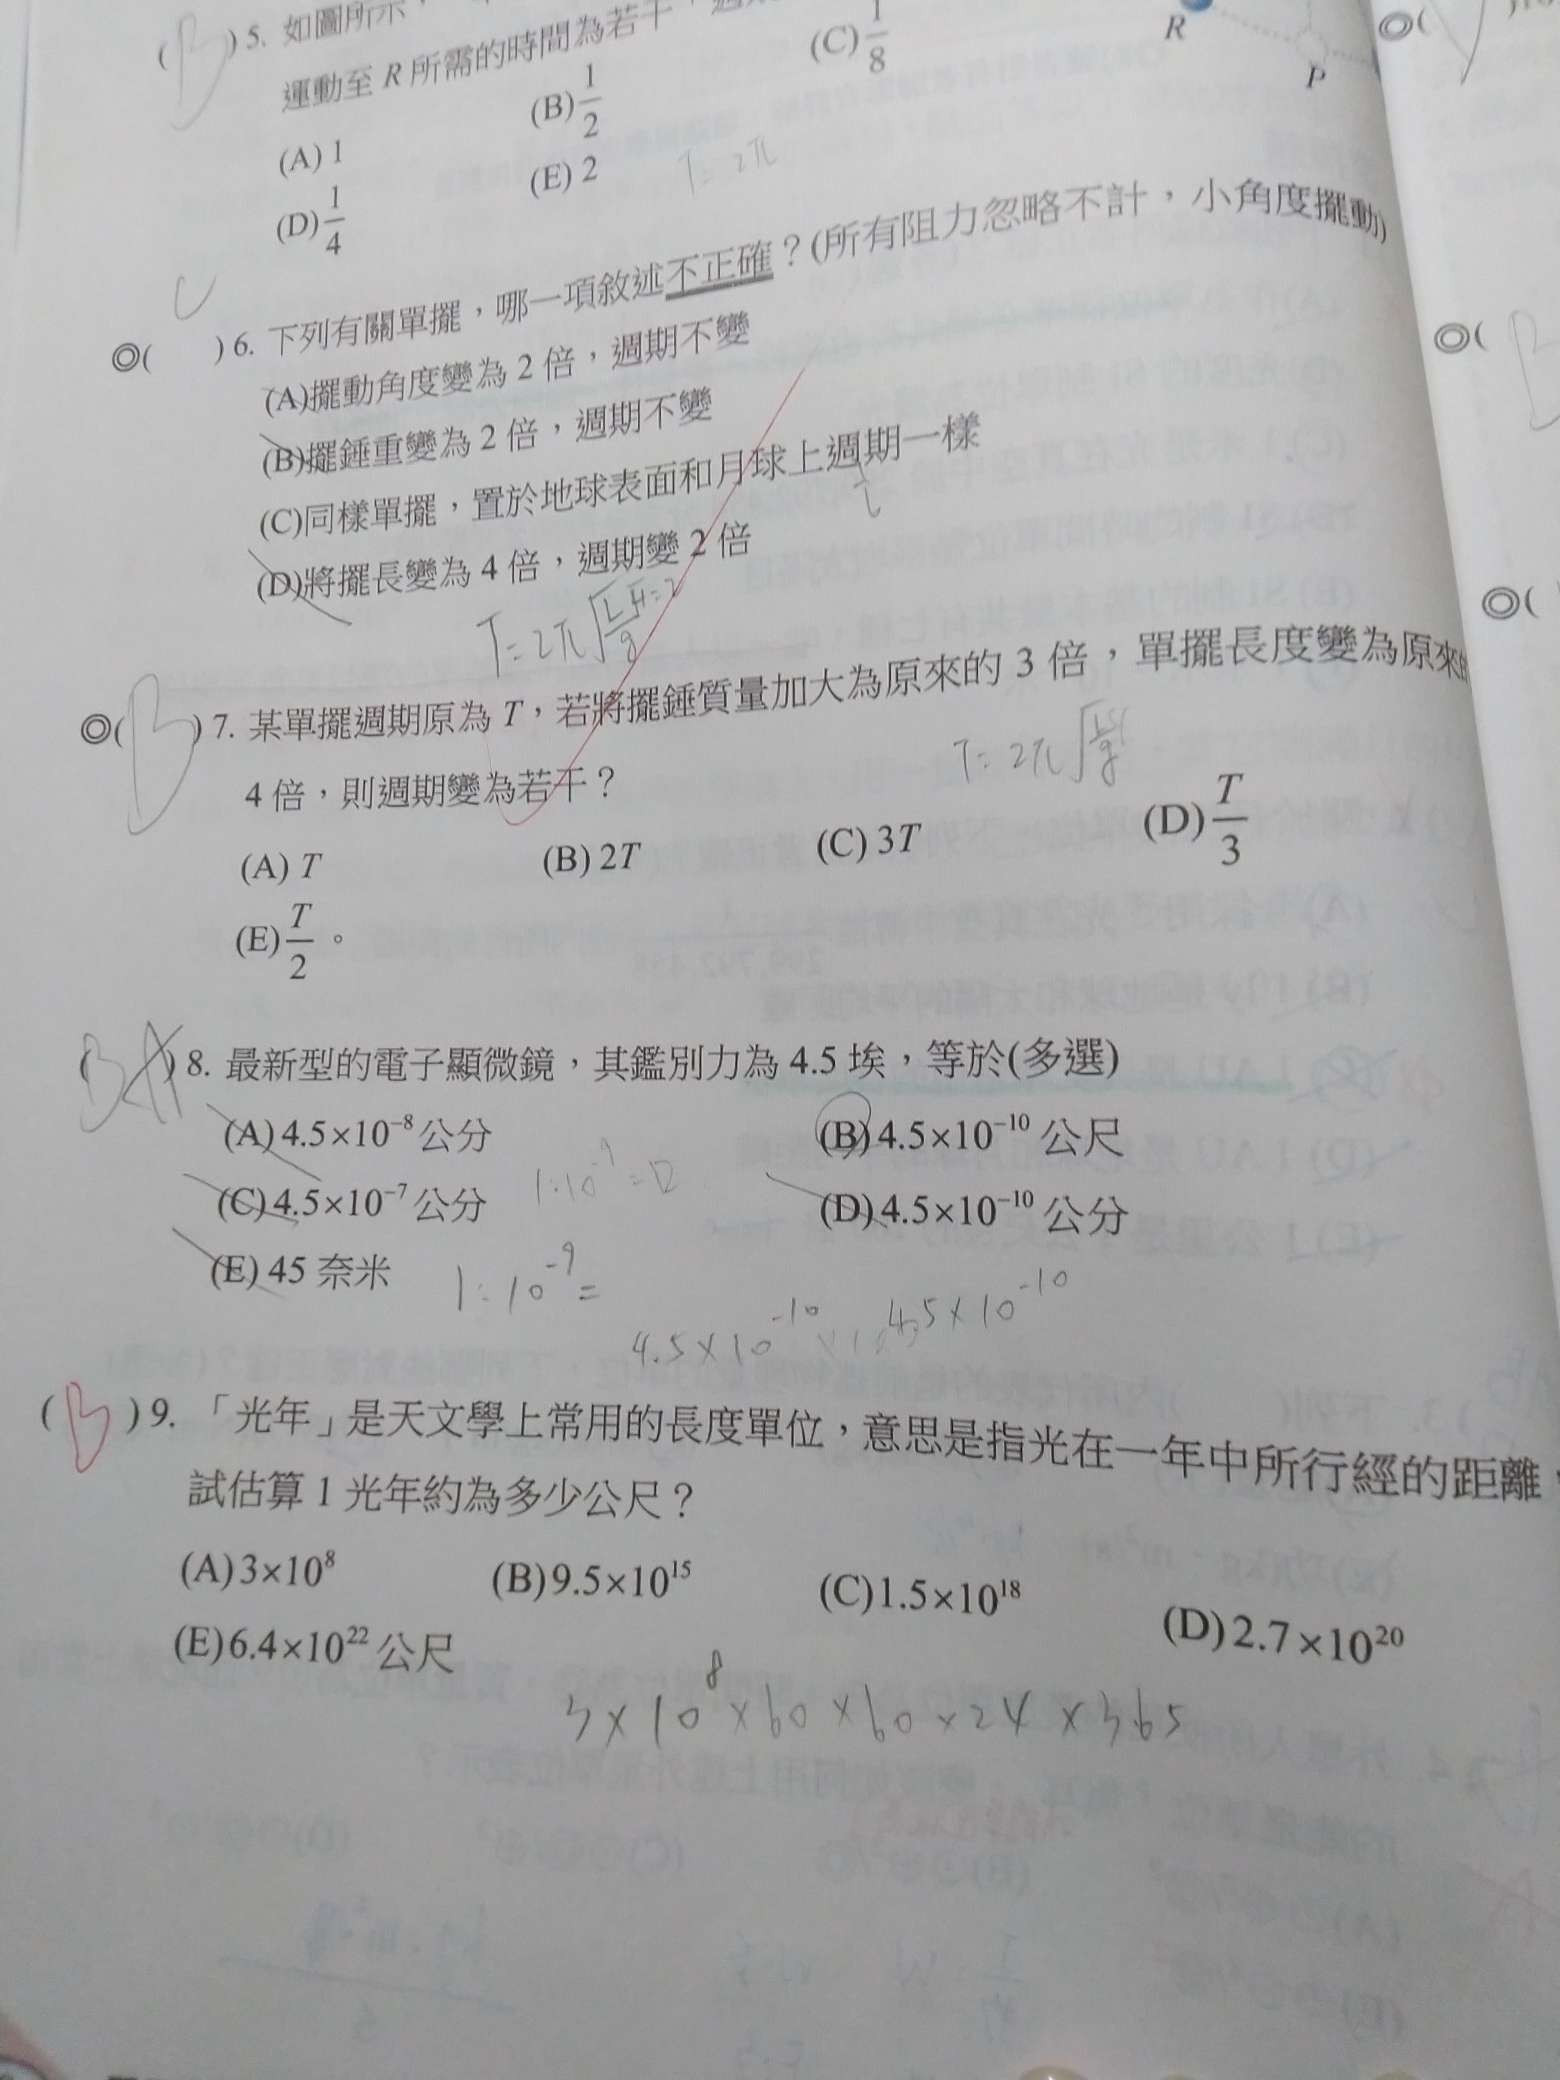 (B) 5. 如圖所示,
運動至 R 所需的時間為若干
(A) 1 (B) 1/2 (C) 1/8
(D) 1/4 (E) 2
T = 2π
R
P
C
◎( ) 6. 下列有關單擺,哪一項敘述不正確?(所有阻力忽略不計,小角度擺動)
(A)擺動角度變為 2 倍,週期不變
(B)擺錘重變為 2 倍,週期不變
(C)同樣單擺,置於地球表面和月球上週期一樣
(D)將擺長變為 4 倍,週期變 2 倍
T = 2π√(L/g) √4=2
◎(B) 7. 某單擺週期原為 T,若將擺錘質量加大為原來的 3 倍,單擺長度變為原來的
4 倍,則週期變為若干?
T = 2π
(A) T (B) 2T (C) 3T (D) T/3
(E) T/2。
(BA) 8. 最新型的電子顯微鏡,其鑑別力為 4.5 埃,等於(多選)
(A) 4.5×10⁻⁸ 公分 (B) 4.5×10⁻¹⁰ 公尺
(C) 4.5×10⁻⁷ 公分 (D) 4.5×10⁻¹⁰ 公分
(E) 45 奈米
1:10⁻⁹ =
4.5×10⁻¹⁰
4.5×10⁻¹⁰
(B) 9. 「光年」是天文學上常用的長度單位,意思是指光在一年中所行經的距離,
試估算 1 光年約為多少公尺?
(A)3×10⁸ (B)9.5×10¹⁵ (C)1.5×10¹⁸ (D)2.7×10²⁰
(E)6.4×10²² 公尺
3×10⁸×60×60×24×365
◎(
◎(
B
◎(